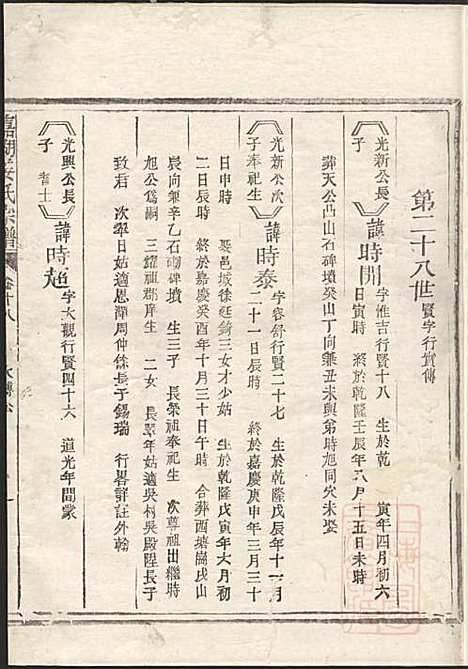 第二十八世 賢字行實傳
光新公長子 諱時開 字惟吉行賢十八 生於乾 寅年四月初六
日寅時 終於乾隆壬辰年八月十五日未時
葬天公凸山石碑墳癸山丁向兼丑未與弟時旭同穴未娶
光新公次子奉祀生 諱時泰 字容舒行賢二十七 生於乾隆戊辰年十一月
二十一日辰時 終於嘉慶庚申年三月三十
日申時 娶邑城徐廷錡三女才少姑 生於乾隆戊寅年六月初
二日辰時 終於嘉慶癸酉年十月三十日午時 合葬酉塘嶺戌山
辰向兼辛乙石碑墳 生三子 長榮祖奉祀生 次尊祖出繼時
旭公爲嗣 三耀祖郡庠生 二女 長翠年姑適吳柯吳殿陞長子
致君 次翠日姑適恩潭周仲侏長子錫瑞 行畧詳註外翰
光照公長子 耆士 諱時超 字大觀行賢四十六 道光年間蒙
宗譜 卷十八